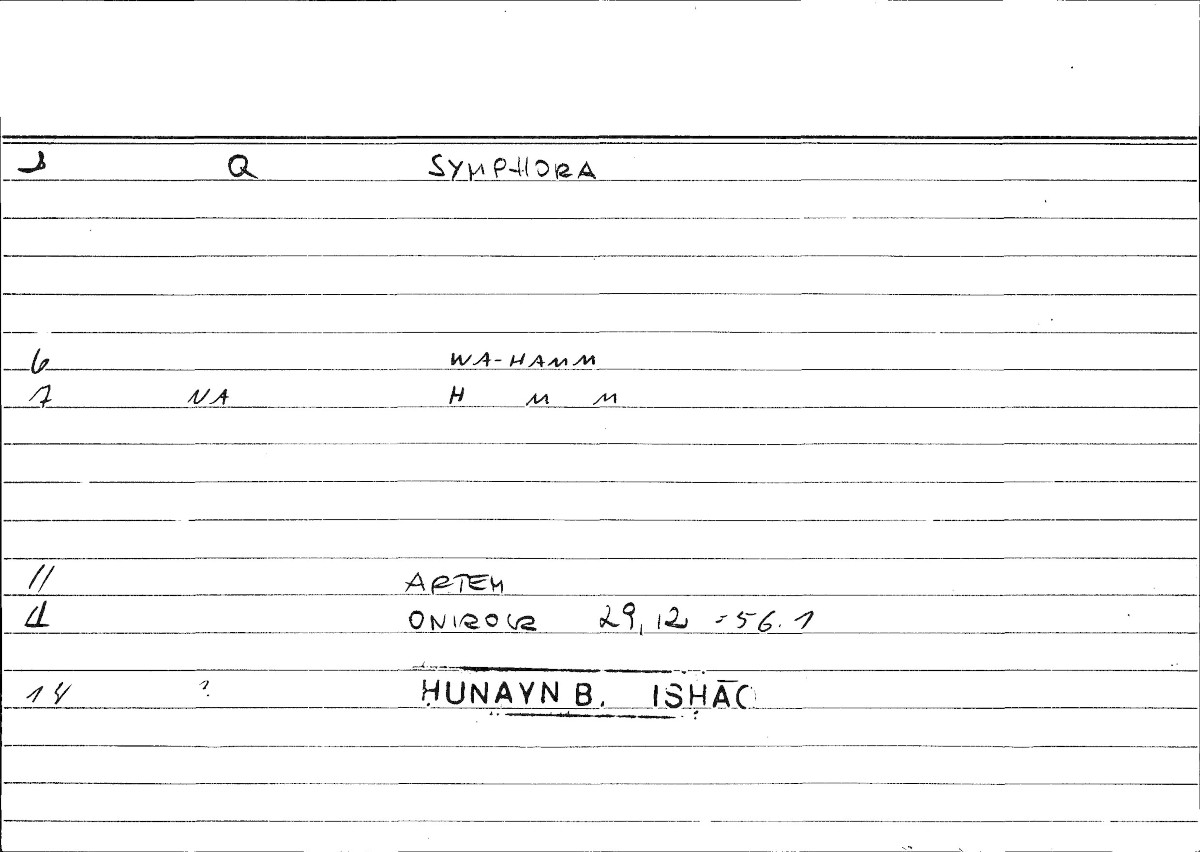 Q SYMPHORA
6 WA-HAMM
7 NA H M M
11 ARTEM
ONIROCR 29,12 =56.1
14 ? ḤUNAYN B. ISḤĀQ